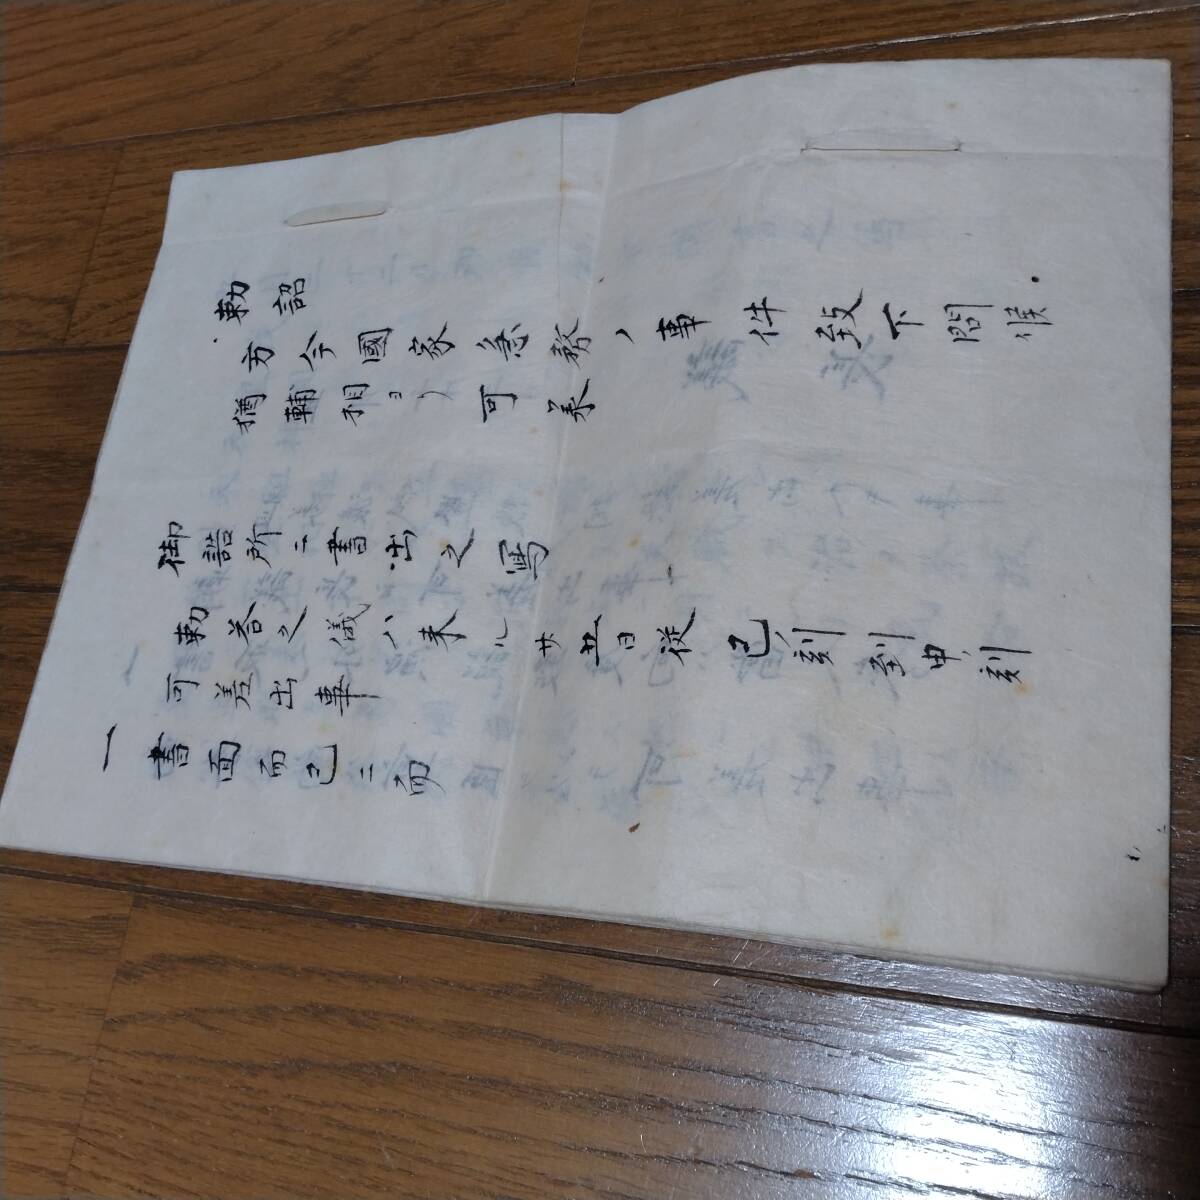 勅詔
方今國家急務ノ事件致下問候
猶輔相ヨリ可承
御誥所ニ書出之寫
勅答之儀ハ来ル廿五日従巳刻到申刻
可差出事
一書面而已ニ而